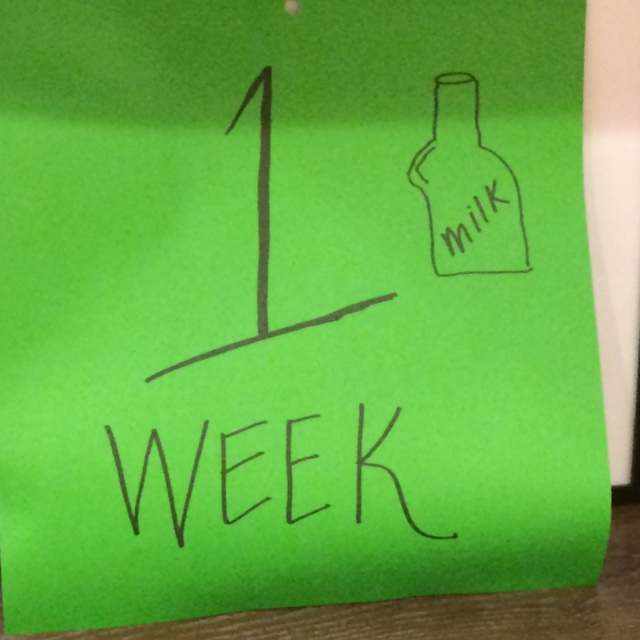 1
milk
WEEK